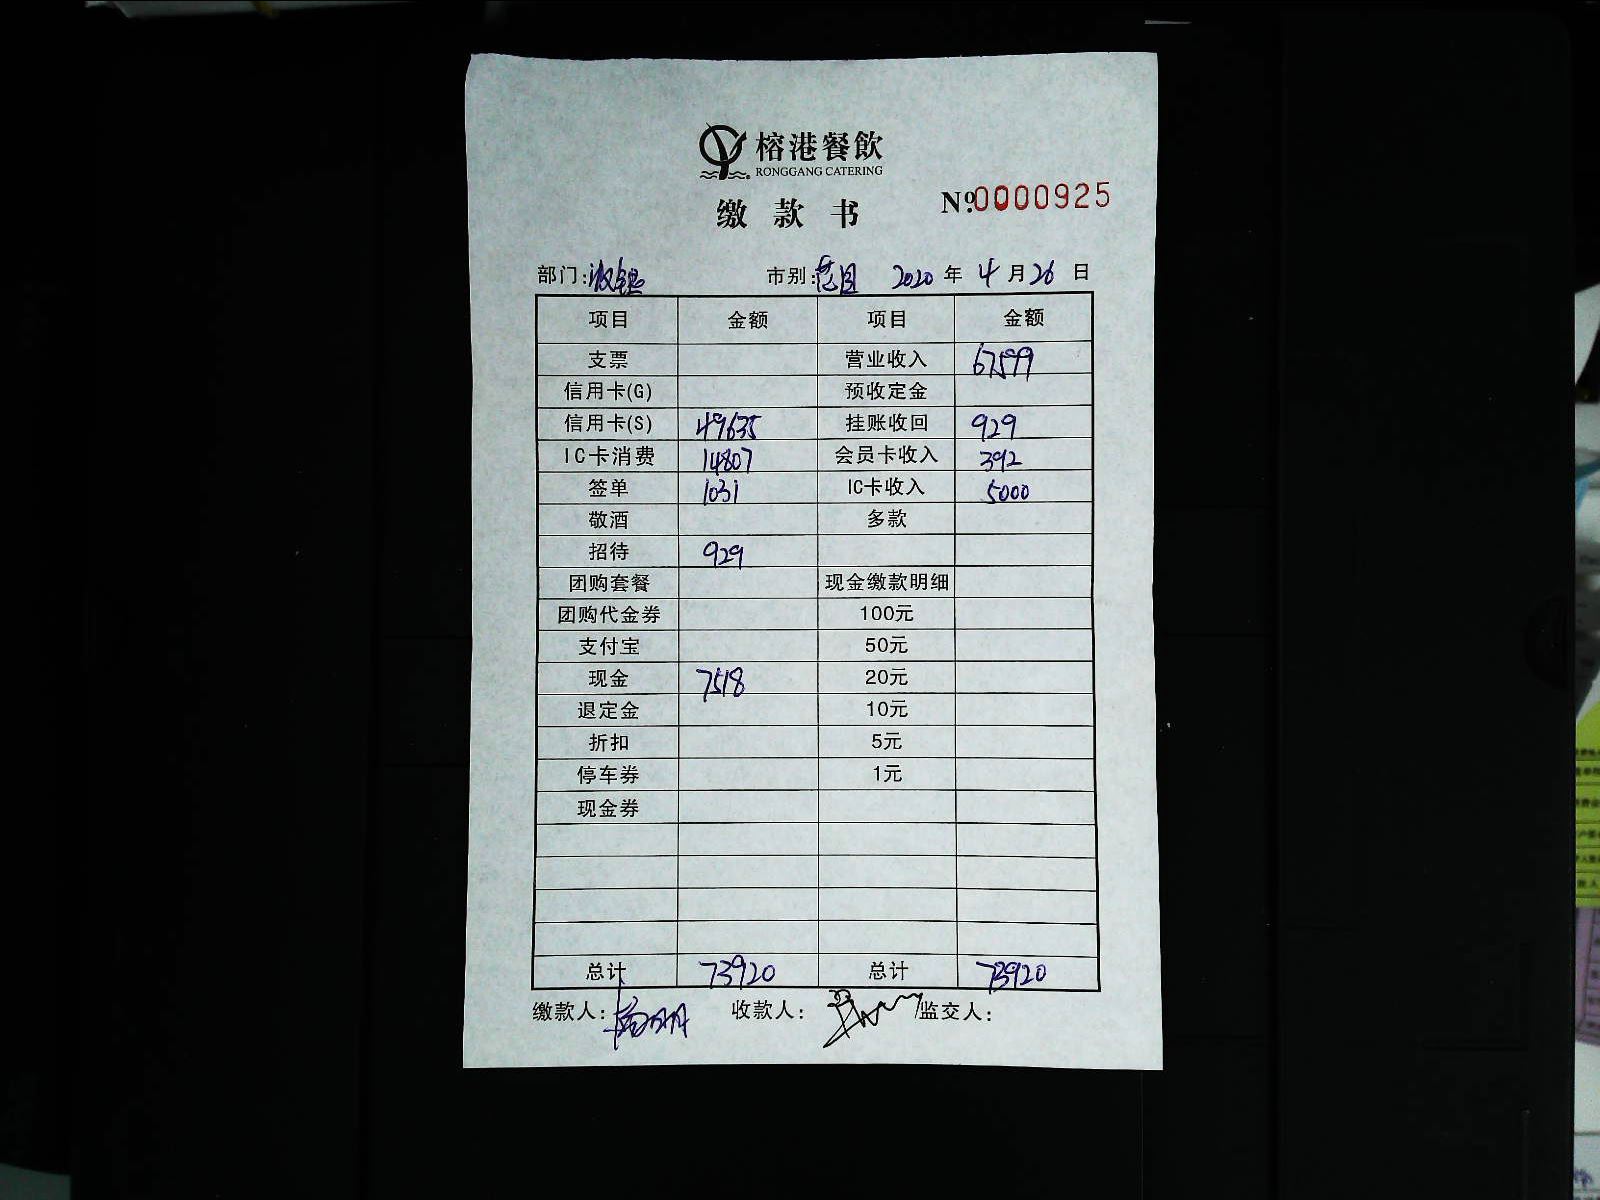 榕港餐飲
RONGGANG CATERING
缴款书 №0000925
部门:收银 市别: 2020年4月26日
项目 金额 项目 金额
支票 营业收入 67599
信用卡(G) 预收定金
信用卡(S) 49635 挂账收回 929
IC卡消费 14807 会员卡收入 392
签单 1031 IC卡收入 5000
敬酒 多款
招待 929
团购套餐 现金缴款明细
团购代金券 100元
支付宝 50元
现金 7518 20元
退定金 10元
折扣 5元
停车券 1元
现金券
总计 73920 总计 73920
缴款人: 收款人: 监交人: